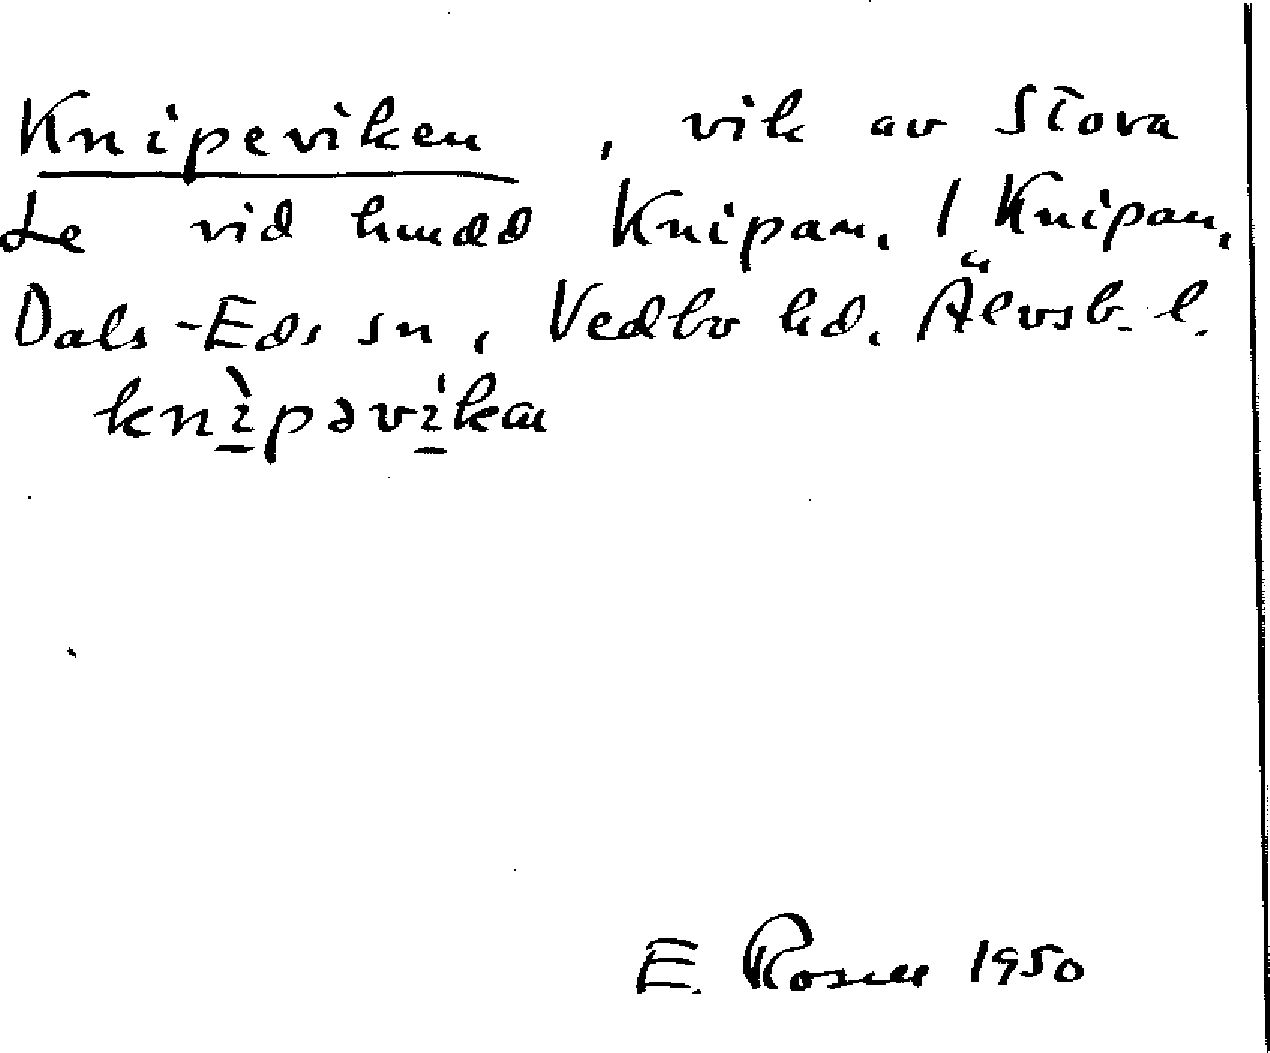 Knipeviken, vik av Stora
Le vid hmdd Knipan, 1 Knipan,
Dals-Eds sn, Vedbo hd. Älvsb. l.
knìpəvikan
E. Rosell 1950